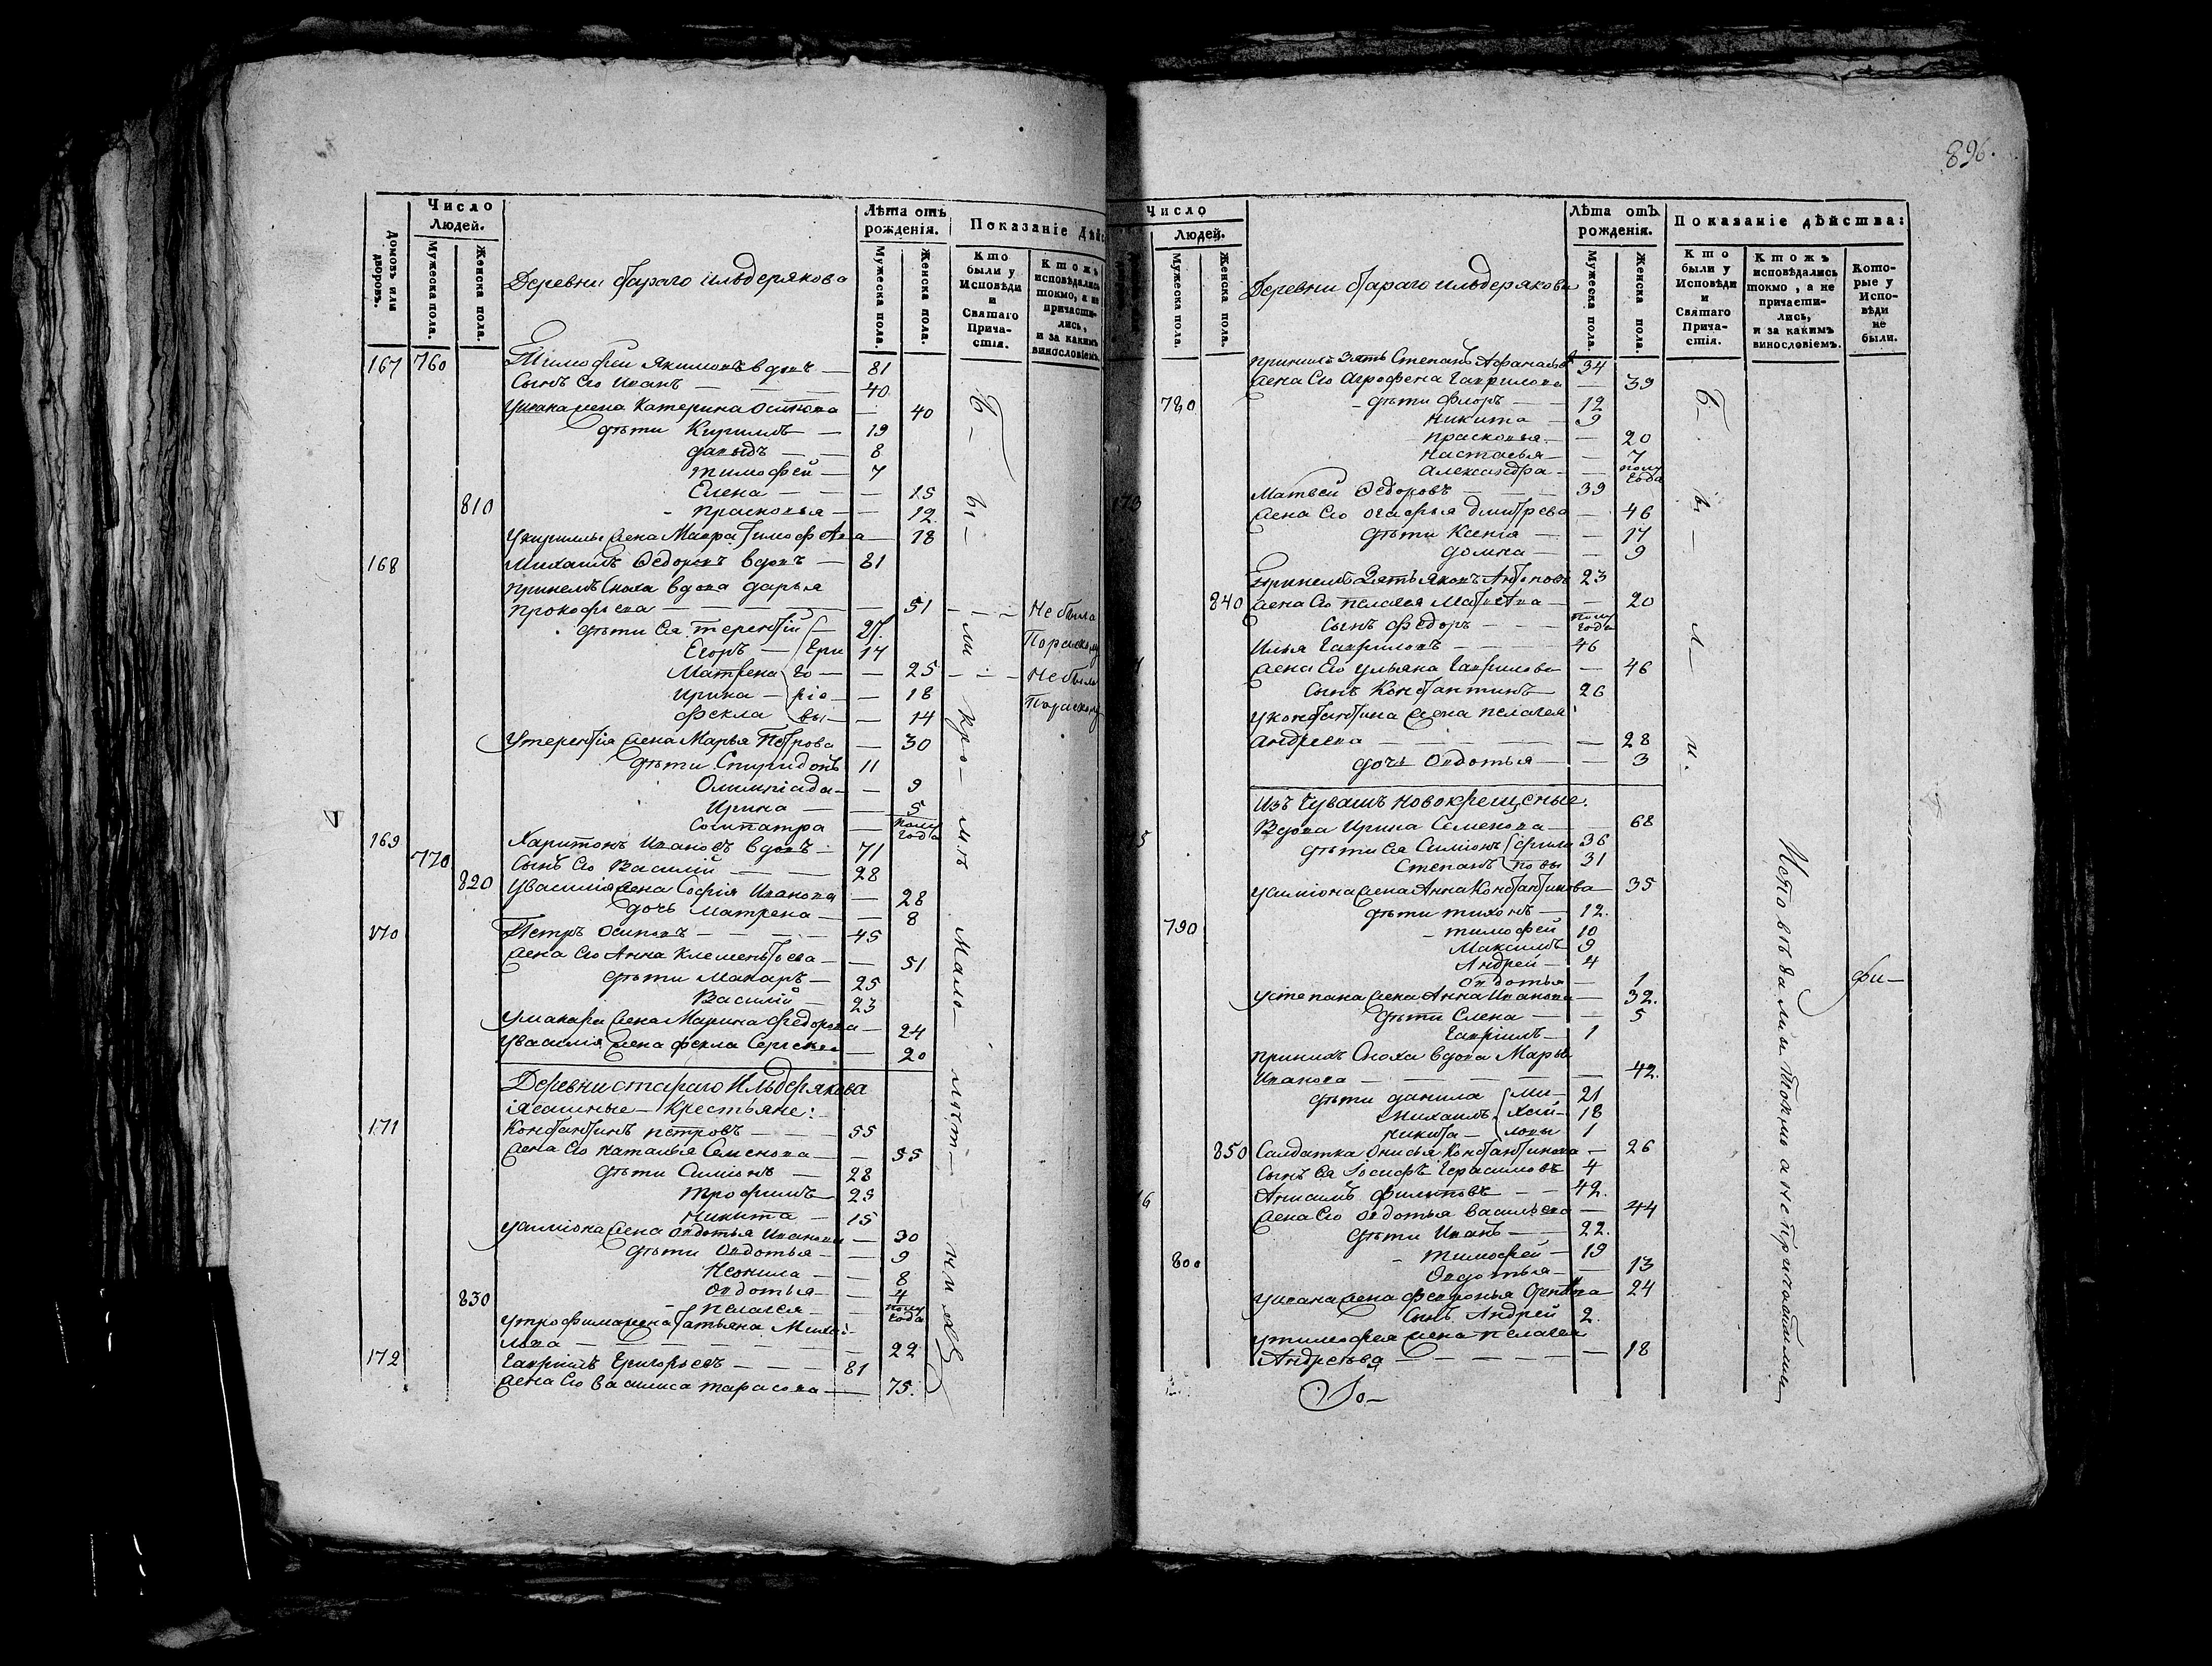 896.
Домовъ или дворовъ.
Число Людей.
Мужеска пола.
Женска пола.
Деревни стараго ильдерякова
Лѣта отъ рожденія.
Мужеска пола.
Женска пола.
Показаніе дѣйс
Кто были у Исповѣди и Святаго Причастія.
Ктожъ исповѣдались токмо, а не причастились, и за какимъ винословіемъ.
167 760 Тимофей Якимовъ вдовъ — 81
Сынъ Его Иванъ — — 40
У ивана жена Катерина Осипова — 40
дѣти Кирилъ — 19
давыдъ — — 8
тимофей — 7
Елена — — — 15
810 прасковья — — 12
У кирилы жена Мавра Тимофѣева — 18
168 Михаилъ Ѳедоровъ вдовъ — 81
при немъ Сноха вдова дарья
прокофьева — — — 51 — Небыла
дѣти Ея терентій — 27. По расколу
Егоръ — Гри 14
Матрена го — — 25 — Небыла
ирина — рье — — 18 По расколу
фекла вы — — 14
У терентія жена Марья Петрова — 30
дѣти Спиридонъ 11
Олимпіада — — 9
Ирина — — 5
Сосипатра — полу года
169 Харитонъ Ивановъ вдовъ — 71
770 Сынъ Его Василій — — 28
820 У василія жена Софія Иванова — 28
дочь Матрена — — 8
170 Петръ Осиповъ — — — 45
жена Его Анна Клементьева — — 51
дѣти Макаръ — 25
Василій — 23
У макара жена Марина Федорова — 24
У василія жена фекла Сергеева — 20
Деревни стараго Ильдерякова
ясашные — Крестьяне:
171 Константинъ петровъ — — 55
жена Его наталья Семенова — — 55
дѣти Симіонъ — 28
трофимъ — 23
Никита — 15
У симіона жена Овдотья Иванова — 30
дѣти Овдотья — — 9
Неонила — — 8
Овдотья — — 4
830 пелагея — — полу года
У трофима жена Татьяна Михай
лова — — — — 22
172 Гаврилъ Григорьевъ — — — 81
жена Его василиса тарасова — — 75.
Число Людей.
Мужеска пола.
Женска пола.
Деревни стараго ильдерякова
Лѣта отъ рожденія.
Мужеска пола.
Женска пола.
Показаніе дѣйства:
Кто были у Исповѣди и Святаго Причастія.
Ктожъ исповѣдались токмо, а не причастились, и за какимъ винословіемъ.
Которые у Исповѣди не были.
при нихъ зять Степанъ Афанасьевъ 34
жена Его Агрофена Гаврилова — 39
780 дѣти Флоръ — — 12
Никита — 9
прасковья. — — 20
Настасья — — 7
Александра — — полу года
173 Матвей Ѳедоровъ — — — 39
жена Его огафья дмитрева — 46
дѣти Ксенія — — 17
домна — — 9
При немъ Зять Яковъ Антоновъ 23
840 жена Его пелагея Матвѣева — — 20
Сынъ Федоръ — — — полу года
Илья Гавриловъ — — — — 46
жена Его ульяна Гаврилова — 46
Сынъ Константинъ — 26
У константина жена пелагея
андреева — — — — — 28
дочь Овдотья — — 3
Изъ Чувашъ новокрещеные.
5 Вдова Ирина Семенова — — 68
дѣти Ея Симіонъ фили 36
Степанъ повы 31
У симіона жена Анна Константинова — 35
дѣти тихонъ — 12.
790 тимофей 10
Максимъ 9
Андрей — 4
Овдотья — 1
У степана жена Анна Иванова — 32.
дѣти Елена — — 5
Гавріилъ — 1
при нихъ Сноха вдова Марья
Иванова — — — — — 42.
дѣти данила Ми — 21
Михаилъ хай — 18
никита — ловы 1
850 Салдатка Онисья Константинова — 26
Сынъ Ея Іосифъ Герасимовъ 4
6 Анисимъ Филиповъ — — 42.
жена Его Овдотья васильева — 44
дѣти Иванъ — — 22.
тимофей — 19
800 Овдотья — — 13
У ивана жена Февронья — 24
Сынъ Андрей 2.
У тимофея жена пелагея
Андреева — — — — — 18
бы — ли — кро — мѣ мало — лѣт — ныхъ
бы — л — и.
Исповѣдались токмо а не причастились